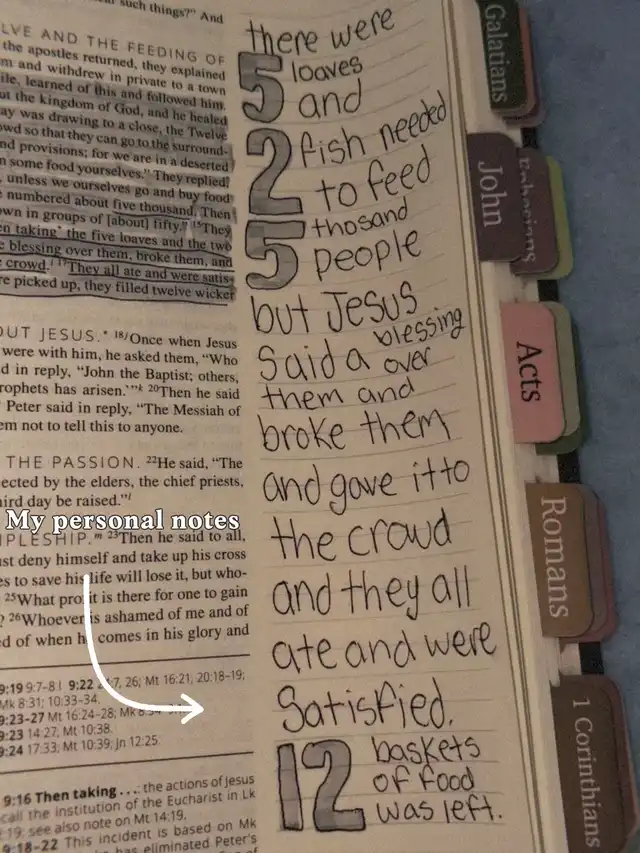 such things?" And
LVE AND THE FEEDING OF
the apostles returned, they explained
m and withdrew in private to a town
ile, learned of this and followed him.
ut the kingdom of God, and he healed
ay was drawing to a close, the Twelve
owd so that they can go to the surround-
nd provisions; for we are in a deserted
n some food yourselves." They replied,
, unless we ourselves go and buy food
e numbered about five thousand. Then
own in groups of [about] fifty." 15They
en taking* the five loaves and the two
e blessing over them, broke them, and
e crowd.j 17They all ate and were satis-
re picked up, they filled twelve wicker
OUT JESUS.* 18iOnce when Jesus
were with him, he asked them, "Who
d in reply, "John the Baptist; others,
rophets has arisen.'"k 20Then he said
Peter said in reply, "The Messiah of
em not to tell this to anyone.
THE PASSION. 22He said, "The
ected by the elders, the chief priests,
hird day be raised."l
My personal notes
IPLESHIP.m 23Then he said to all,
ust deny himself and take up his cross
es to save his life will lose it, but who-
25What profit is there for one to gain
? 26Whoever is ashamed of me and of
ed of when he comes in his glory and
9:19 9:7-8.| 9:22 7, 26; Mt 16:21; 20:18-19;
Mk 8:31; 10:33-34.
9:23-27 Mt 16:24-28; Mk
9:23 14:27; Mt 10:38.
9:24 17:33; Mt 10:39; Jn 12:25.
9:16 Then taking . . . : the actions of Jesus
call the institution of the Eucharist in Lk
:19; see also note on Mt 14:19.
9:18-22 This incident is based on Mk
has eliminated Peter's
there were
5 loaves
and
2 fish needed
to feed
5 thosand
people
but Jesus
said a blessing
over
them and
broke them
and gave it to
the crowd
and they all
ate and were
Satisfied.
12 baskets
of food
was left.
Galatians
Ephesians
John
Acts
Romans
1 Corinthians